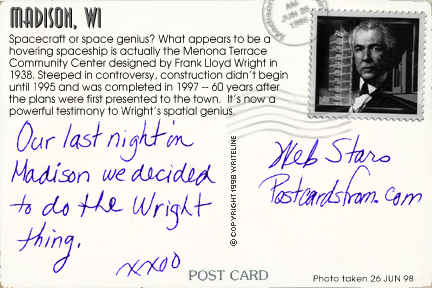 MADISON, WI
Spacecraft or space genius? What appears to be a
hovering spaceship is actually the Menona Terrace
Community Center designed by Frank Lloyd Wright in
1938. Steeped in controversy, construction didn't begin
until 1995 and was completed in 1997 -- 60 years after
the plans were first presented to the town. It's now a
powerful testimony to Wright's spatial genius.
Our last night in
Madison we decided
to do the Wright
thing.
xxoo
© COPYRIGHT 1998 WRITELINE
Web Stars
Postcardsfrom.com
POST CARD
Photo taken 26 JUN 98